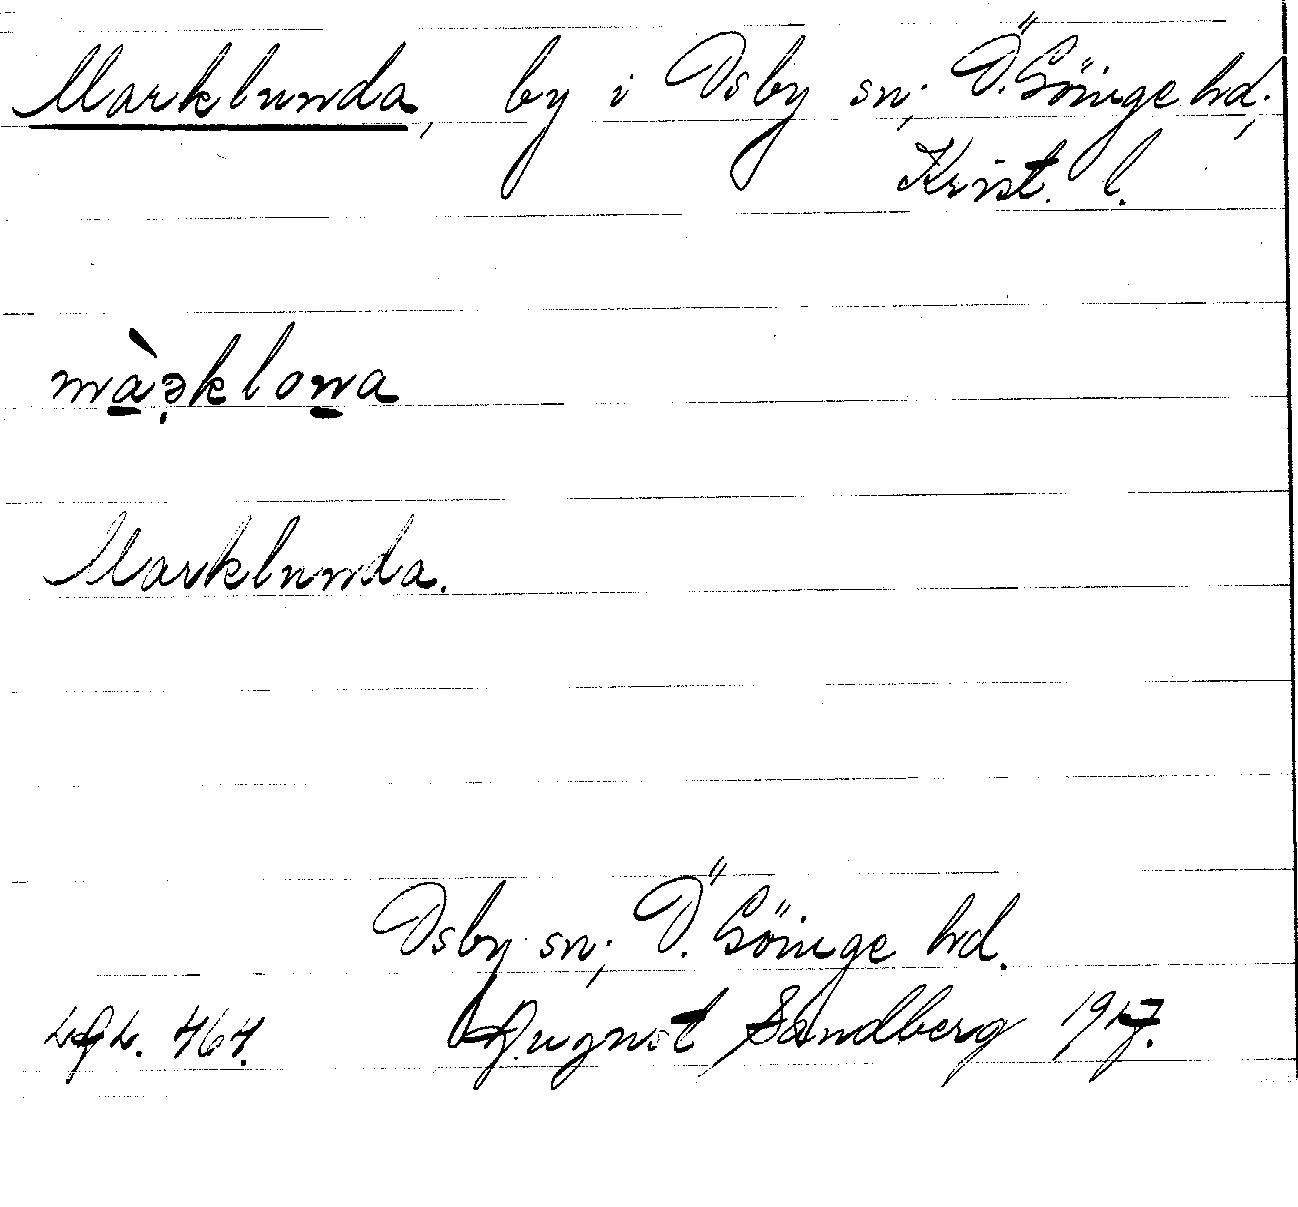 Marklunda, by i Osby sn; Ö. Göinge hd;
Krist. l.
Marklunda.
Osby sn; Ö. Göinge hd.
August Sandberg 1917.